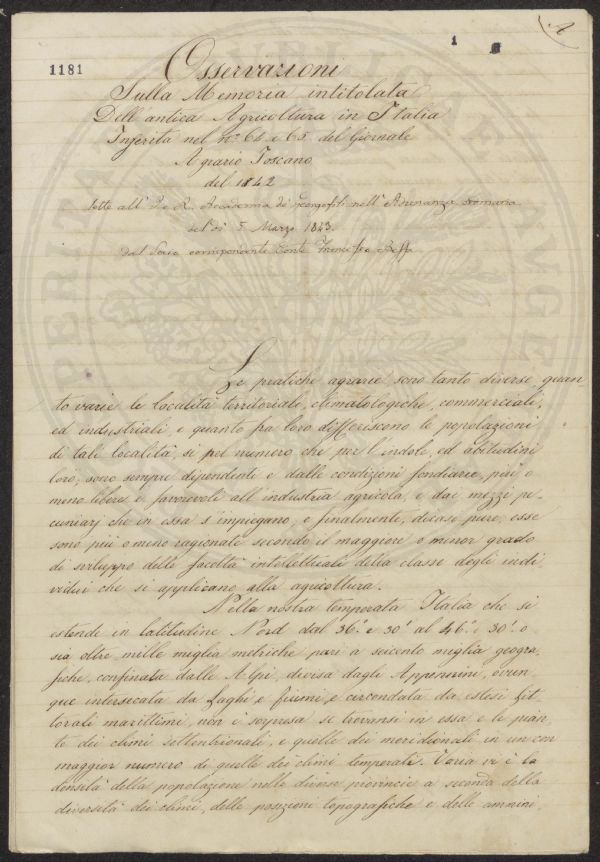 A
1
1181
Osservazioni
Sulla Memoria intitolata
Dell'antica Agricoltura in Italia
Inserita nel n.° 64 e 65 del Giornale
Agrario Toscano
del 1842
lette all' I. e R. Accademia dei Georgofili nell'Adunanza
del dì 5 Marzo 1843.
dal Socio corrispondente Conte Francesco Beffa
Le pratiche agrarie sono tanto diverse, quan
to varie le località territoriali, climatologiche, commerciali,
ed industriali e quanto fra loro differiscono le popolazioni
di tali località, sì pel numero che per l'indole, ed abitudini
loro; sono sempre dipendenti e dalle condizioni fondiarie, più o
meno libere e favorevoli all'industria agricola, e dai mezzi pe-
cuniarj che in essa s'impiegano, e finalmente, dicasi pure, esse
sono più o meno ragionate secondo il maggiore o minor grado
di sviluppo delle facoltà intellettuali della classe degli indi
vidui che si applicano alla agricoltura.
Nella nostra temperata Italia che si
estende in latitudine Nord dal 36.° e 30' al 46.° e 30' o
sia oltre mille miglia metriche pari a seicento miglia geogra
fiche, confinata dalle Alpi, divisa dagli Appennini, ovun
que intersecata da Laghi e fiumi, e circondata da estesi lit
torali marittimi, non è sorpresa se trovansi in essa e le pian
te dei climi settentrionali, e quelle dei meridionali in un con
maggior numero di quelle dei climi temperati. Varia vi è la
densità della popolazione nelle diverse provincie a seconda della
diversità dei climi, delle posizioni topografiche e delle ammini